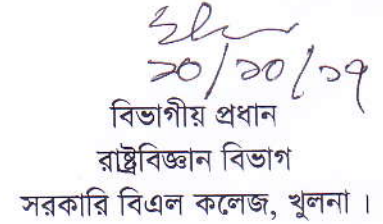 ১০/১০/১৭
বিভাগীয় প্রধান
রাষ্ট্রবিজ্ঞান বিভাগ
সরকারি বিএল কলেজ, খুলনা ।